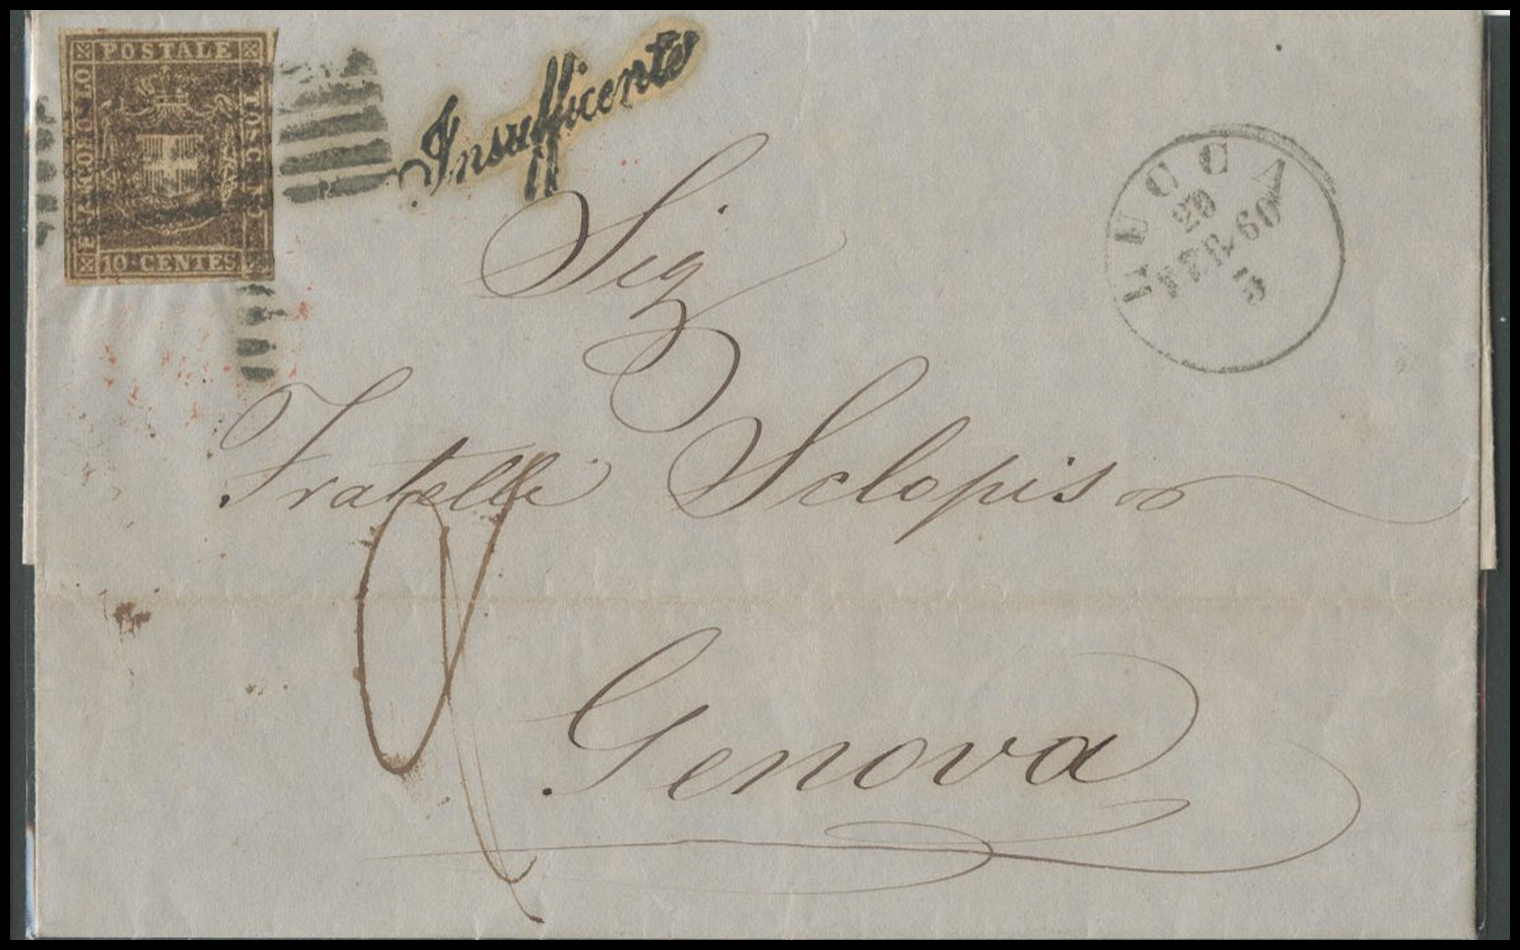 FRANCOBOLLO
POSTALE
TOSCANO
10 CENTES
Insufficente
LUCCA
20
FEB. 60
5
Sig
Fratelli Sclopis
Genova